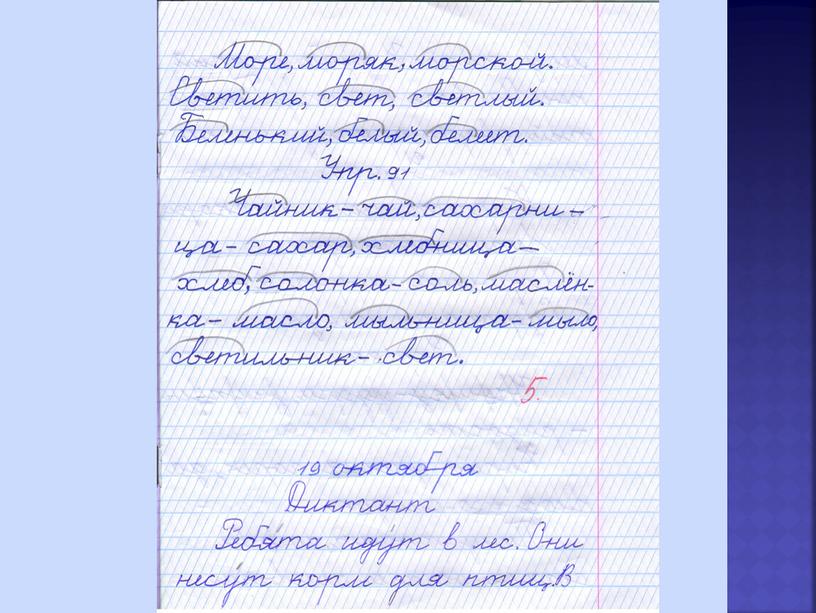 Море, моряк, морской.
Светить, свет, светлый.
Беленький, белый, белеет.
Упр. 91
Чайник - чай, сахарни -
ца - сахар, хлебница -
хлеб, солонка - соль, маслён-
ка - масло, мыльница - мыло,
светильник - свет.
5.
19 октября
Диктант
Ребята идут в лес. Они
несут корм для птиц. В